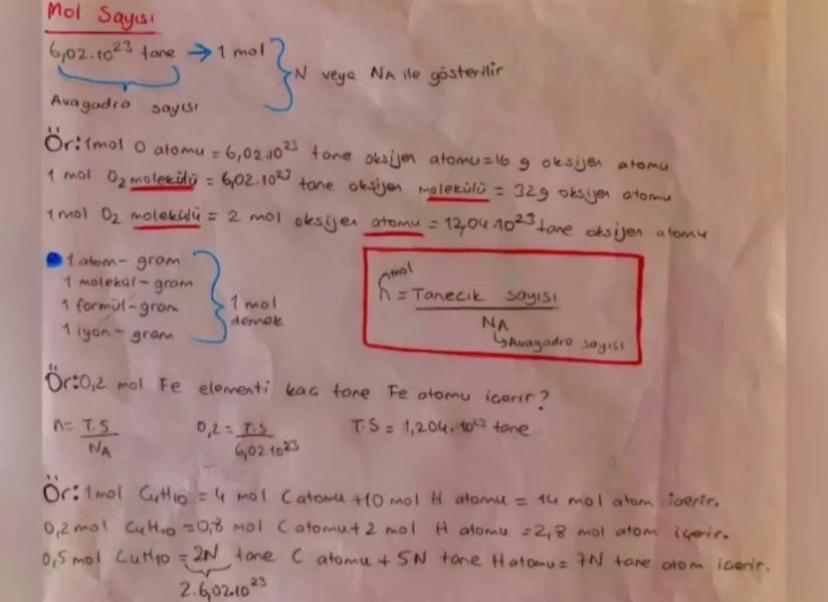 Mol Sayısı
6,02.10²³ tane → 1 mol
N veya NA ile gösterilir
Avagadro sayısı
Ör: 1mol O atomu = 6,02.10²³ tane oksijen atomu = 16 g oksijen atomu
1 mol O₂ molekülü = 6,02.10²³ tane oksijen molekülü = 32g oksijen atomu
1 mol O₂ molekülü = 2 mol oksijen atomu = 12,04.10²³ tane oksijen atomu
1 atom-gram
1 molekül-gram
1 formül-gram
1 iyon-gram
1 mol demek
mol
n = Tanecik sayısı
NA
Avagadro sayısı
Ör: 0,2 mol Fe elementi kac tane Fe atomu icerir?
n = T.S / NA 0,2 = T.S / 6,02.10²³ T.S = 1,204.10²³ tane
Ör: 1mol C4H10 = 4 mol C atomu + 10 mol H atomu = 14 mol atom icerir.
0,2 mol C4H10 = 0,8 mol C atomu + 2 mol H atomu = 2,8 mol atom içerir.
0,5 mol C4H10 = 2N tane C atomu + 5N tane H atomu = 7N tane atom icerir.
2.6,02.10²³